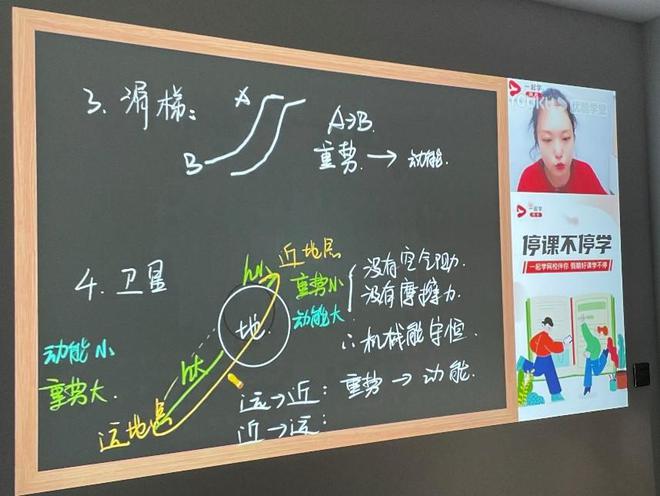 3. 滑梯:
A
B
A→B.
重势. → 动能.
4. 卫星
近地点
h小
重势小
动能大
没有空气阻力.
没有摩擦力
∴机械能守恒.
地
动能小
重势大.
h大
远地点
远→近: 重势 → 动能.
近→远:
一起学
YOUKU 优酷学堂
一起学
停课不停学
一起学网校伴你 假期好课学不停